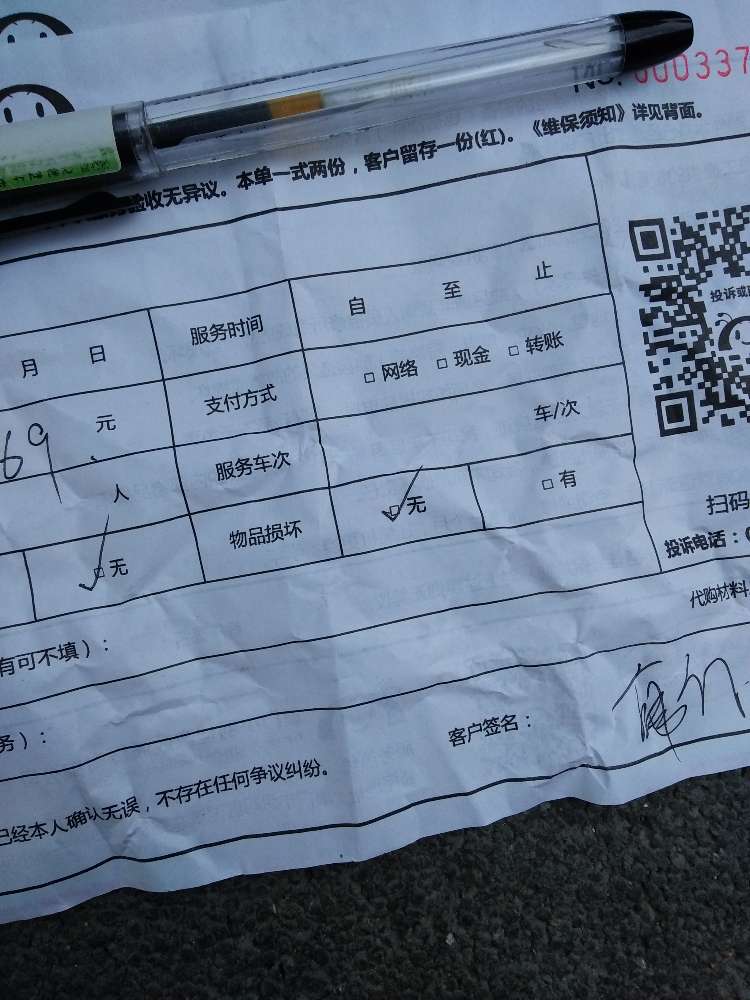 No. 000337
验收无异议。本单一式两份，客户留存一份(红)。《维保须知》详见背面。
月 日 服务时间 自 至 止
69 元 支付方式 □ 网络 □ 现金 □ 转账
人 服务车次 车/次
□ 无 物品损坏 □ 无 □ 有
投诉或
扫码
投诉电话：
有可不填）：
代购材料
务）：
客户签名：
已经本人确认无误，不存在任何争议纠纷。